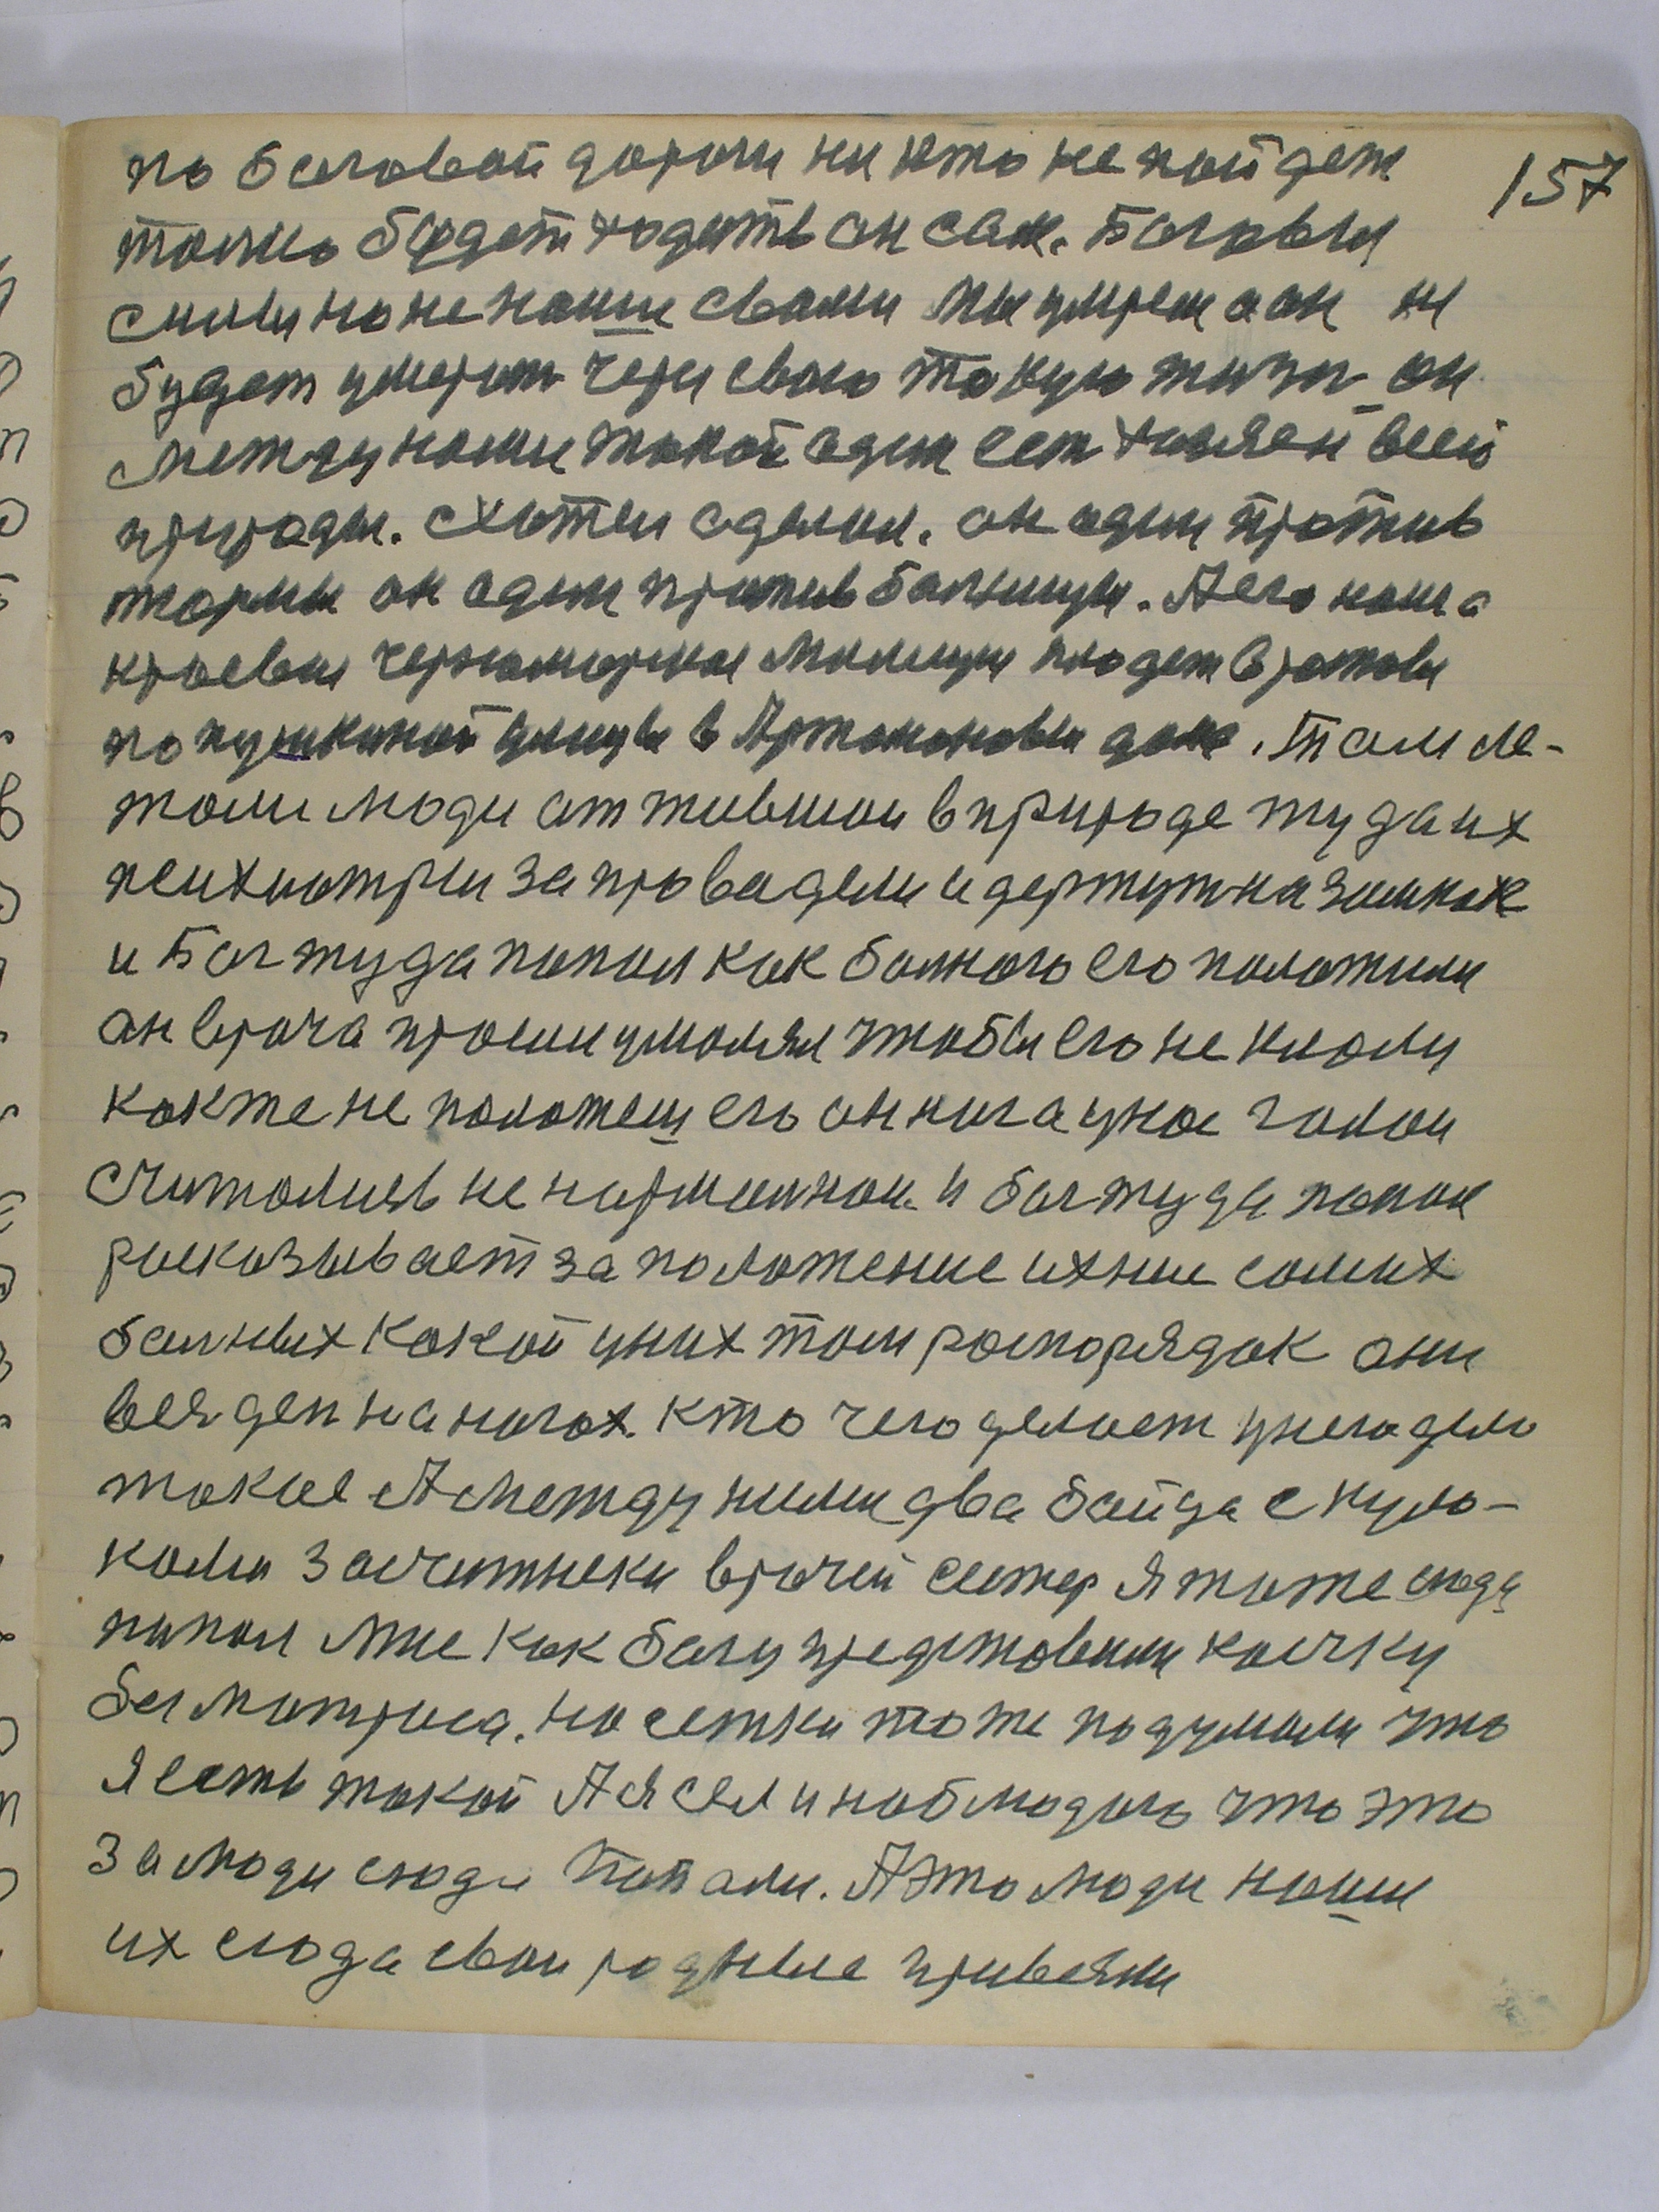 157
по баговай дароги ни кто не пайдет
толко будет ходить он сам. Баговы
силы но не наши с вами мы умрем а он ни
будет умерат через свою такую жизн он
между нами такой адин ест хазяен всей
природы. схотел сделал. он адин против
тюрмы он адин против балницы. А его наша
краевая черноморская милиция кладет в ростови
по пушкиной улицы в Артамоновы даче. Там ле-
жали люди от жившаи в природе туда их
психиатры запровадели и держут на замках
и Баг туда попал как балного его положили
он врача просил умолял чтобы его не клали
как же не положеш его он нога у нас голои
считались не нармалнаи. и баг туда попал
расказывает за положение ихнии самих
балных какой у них там распорядак они
вся ден на ногах. кто чего делает у него дело
такие А между ними два байца с куло-
ками засчитнеки врачей сестер Я тоже сюда
попал мне как багу представили коечку
без матраса. на сетки тоже подумали что
я есть такой А я сел и наблюдаю что это
за люди сюда попали. А это люди наши
их сюда сваи родные привезли